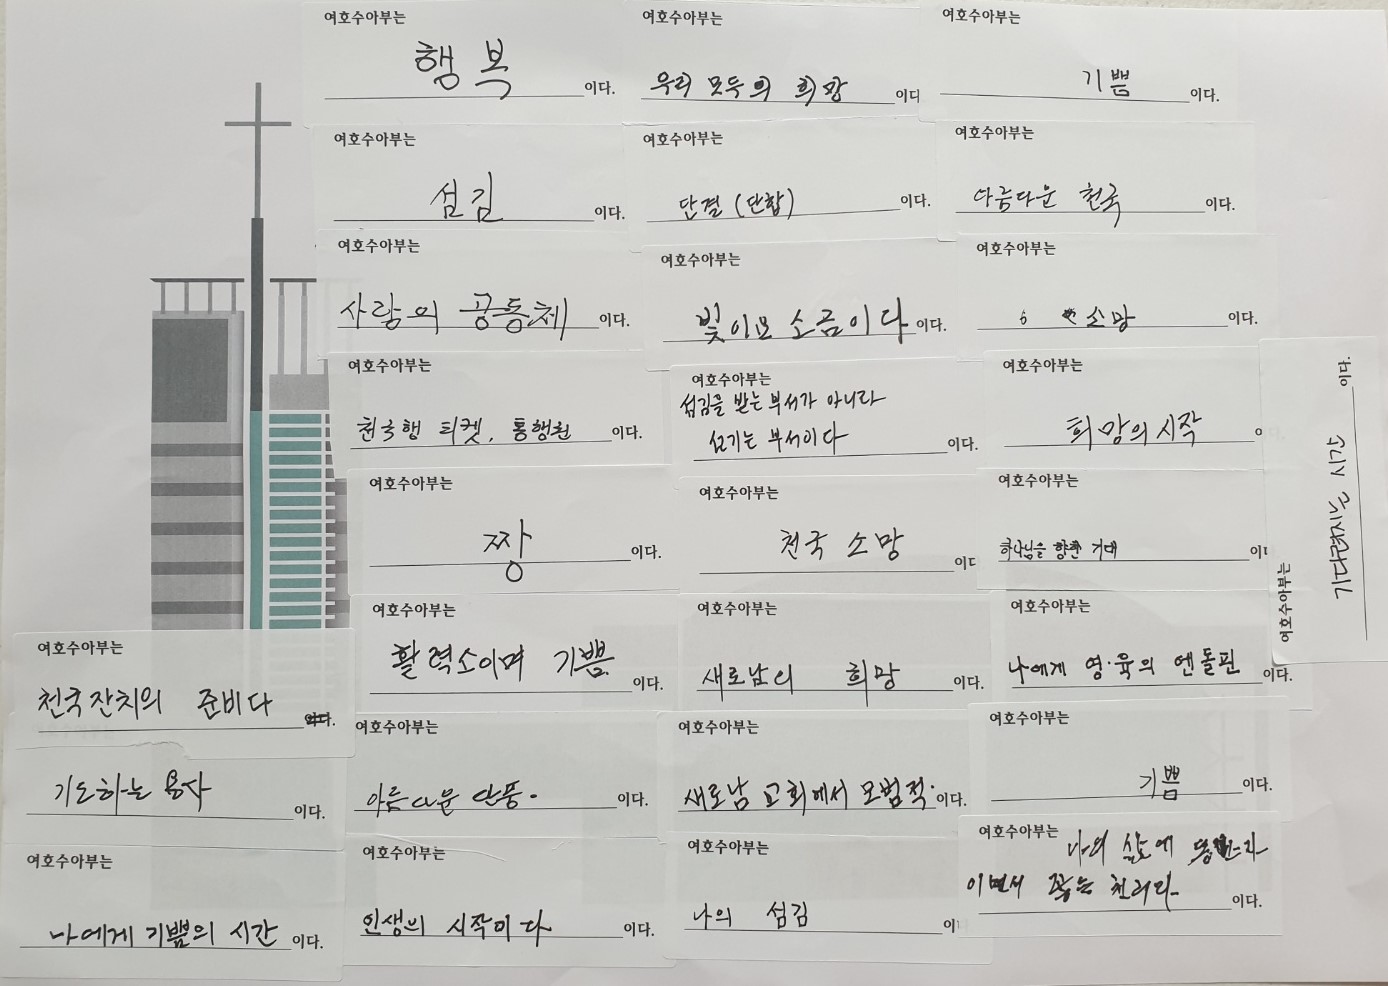 여호수아부는
행복 이다.
여호수아부는
우리 모두의 희망 이다
여호수아부는
기쁨 이다.
여호수아부는
섬김 이다.
여호수아부는
단결 (단합) 이다.
여호수아부는
아름다운 천국 이다.
여호수아부는
사랑의 공동체 이다.
여호수아부는
빛이요 소금이다 이다.
여호수아부는
소망 이다.
여호수아부는
천국행 티켓, 통행권 이다.
여호수아부는
섬김을 받는 부서가 아니라
섬기는 부서이다 이다.
여호수아부는
희망의 시작
여호수아부는
기다려지는 시간 이다.
여호수아부는
짱 이다.
여호수아부는
천국 소망 이다
여호수아부는
하나님을 향한 기대
여호수아부는
천국잔치의 준비다
여호수아부는
활력소이며 기쁨 이다.
여호수아부는
새로남의 희망 이다.
여호수아부는
나에게 영·육의 엔돌핀 이다.
기도하는 용사 이다.
여호수아부는
아름다운 단풍. 이다.
여호수아부는
새로남 교회에서 모범적. 이다.
여호수아부는
기쁨 이다.
여호수아부는
나에게 기쁨의 시간 이다.
여호수아부는
인생의 시작이다 이다.
여호수아부는
나의 섬김
여호수아부는 나의 삶에
이면서 이다.